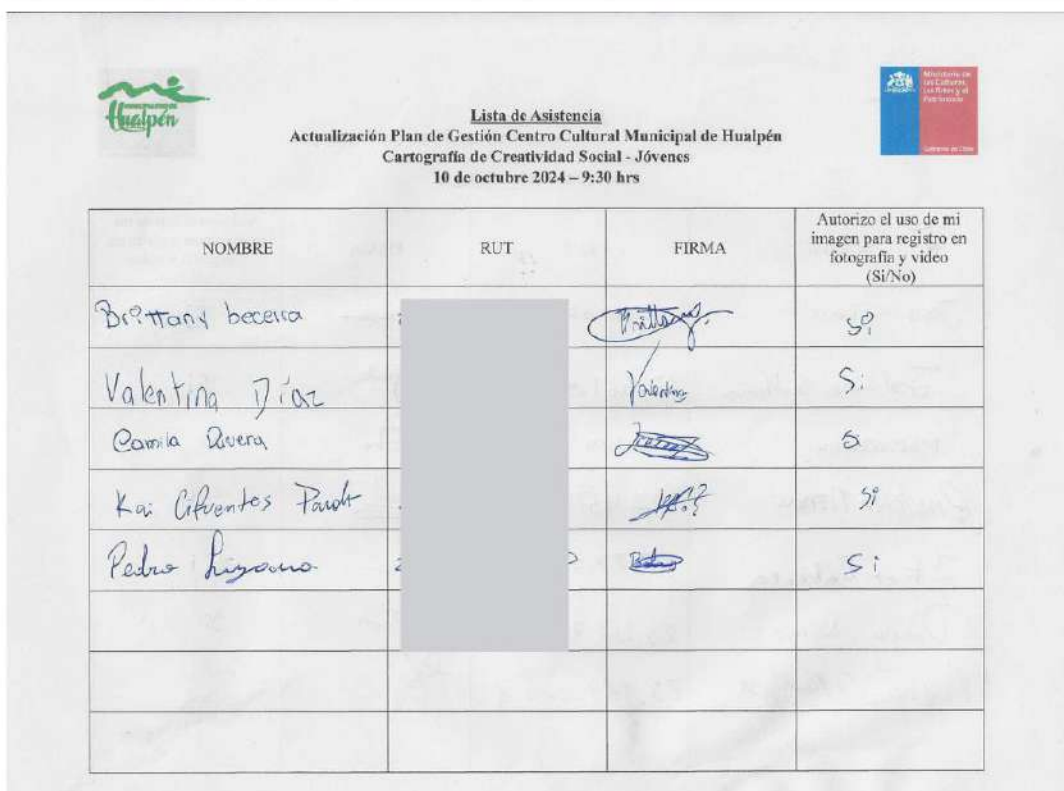 MUNICIPALIDAD DE
Hualpén
Ministerio de
las Culturas,
las Artes y el
Patrimonio
Gobierno de Chile
Lista de Asistencia
Actualización Plan de Gestión Centro Cultural Municipal de Hualpén
Cartografía de Creatividad Social - Jóvenes
10 de octubre 2024 – 9:30 hrs
NOMBRE RUT FIRMA Autorizo el uso de mi
imagen para registro en
fotografía y video
(Si/No)
Brittany becerra Brittany Si
Valentina Díaz Valentina Si
Camila Rivera Si
Kai Cifuentes Si
Pedro Si